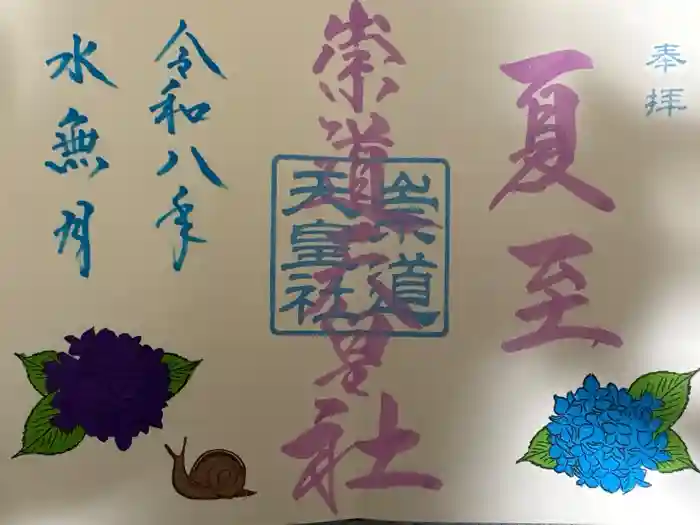 奉拝
夏至
崇道天皇社
崇道
天皇社
令和八年
水無月